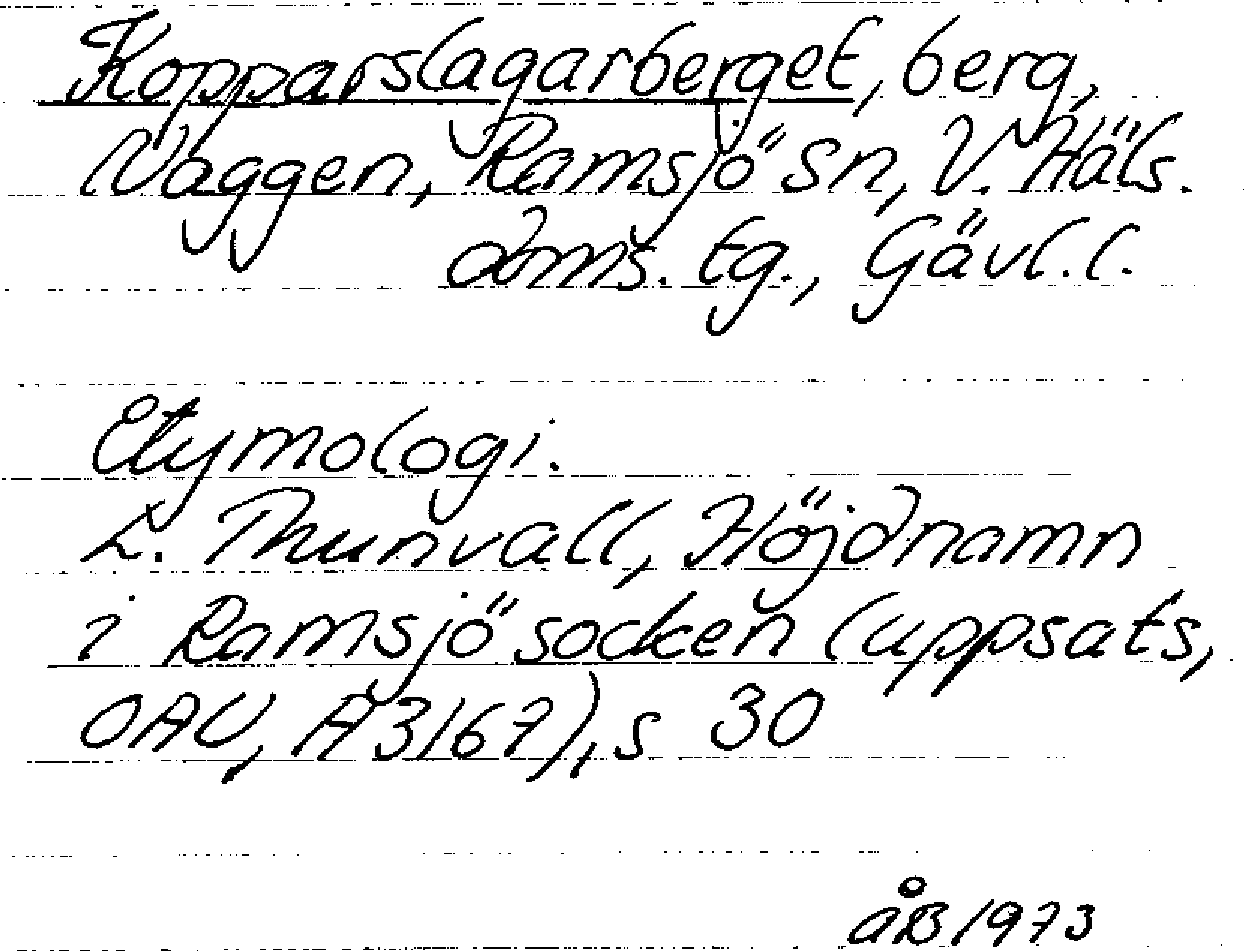 Kopparslagarberget, berg,
Väggen, Ramsjö sn, V. Häls.
doms. tg., Gävl. l.
Etymologi.
L. Thunvall, Höjdnamn
i Ramsjö socken (uppsats,
OAU, A 3167), s 30
åB 1973